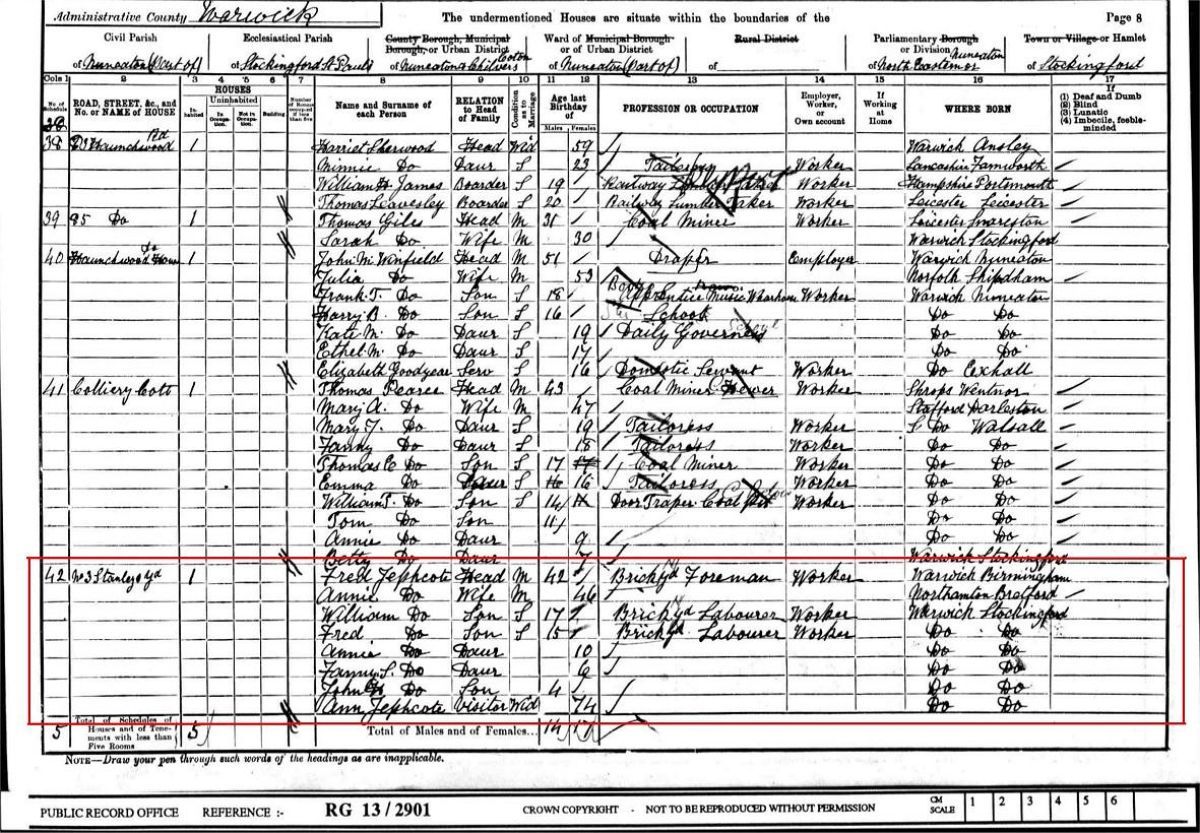 Administrative County Warwick The undermentioned Houses are situate within the boundaries of the Page 8
Civil Parish Ecclesiastical Parish County Borough, Municipal Borough, or Urban District Ward of Municipal Borough or of Urban District Rural District Parliamentary Borough or Division Town or Village or Hamlet
of Nuneaton (Part of) of Stockingford St Pauls of Nuneaton & Chilvers Coton of Nuneaton (Part of) of of North Eastern or Nuneaton of Stockingford
Cols 1 2 3 4 5 6 7 8 9 10 11 12 13 14 15 16 17
No. of Schedule ROAD, STREET, &c., and No. or NAME of HOUSE HOUSES Inhabited Uninhabited In Occupation. Not in Occupation. Building Number of Rooms if less than five Name and Surname of each Person RELATION to Head of Family Condition as to Marriage Age last Birthday of Males Females PROFESSION OR OCCUPATION Employer, Worker, or Own account If Working at Home WHERE BORN If (1) Deaf and Dumb (2) Blind (3) Lunatic (4) Imbecile, feeble-minded
38
38 Haunchwood Rd 1 Harriet Sherwood Head Wid 59 Warwick Ansley
Minnie Do Daur S 23 Tailoress Worker Lancashire Farnworth
William James Boarder S 19 Railway Worker Hampshire Portsmouth
Thomas Leavesley Boarder S 20 Railway Number Taker Worker Leicester Leicester
39 95 Do 1 Thomas Giles Head M 31 Coal Miner Worker Leicester Snareston
Sarah Do Wife M 30 Warwick Stockingford
40 Haunchwood Ho 1 John M. Winfield Head M 51 Draper Employer Warwick Nuneaton
Julia Do Wife M 53 Norfolk Shipdham
Frank T. Do Son S 18 Apprentice Music Worker Warwick Nuneaton
Harry B. Do Son S 16 School Do Do
Kate M. Do Daur S 19 Daily Governess School Do Do
Ethel M. Do Daur S 17 Do Do
Elizabeth Goodyear Serv S 16 Domestic Servant Worker Do Exhall
41 Colliery Cott 1 Thomas Pearce Head M 43 Coal Miner Hewer Worker Shrops Wentnor
Mary A. Do Wife M 47 Stafford Darleston
Mary J. Do Daur S 19 Tailoress Worker S Do Walsall
Fanny Do Daur S 18 Tailoress Worker Do Do
Thomas E Do Son S 17 17 Coal Miner Worker Do Do
Emma Do Daur S 16 16 Tailoress Worker Do Do
William T. Do Son S 14 14 Door Traper Coal Pit Worker Do Do
Tom Do Son 11 Do Do
Annie Do Daur 9 Do Do
Betty Do Daur 7 Warwick Stockingford
42 No 3 Stanleys Yd 1 Fred Jephcote Head M 42 Brickyd Foreman Worker Warwick Birmingham
Annie Do Wife M 46 Northamton Bralford
William Do Son S 17 Brickyd Labourer Worker Warwick Stockingford
Fred Do Son S 15 Brickyd Labourer Worker Do Do
Annie Do Daur 10 Do Do
Fanny S. Do Daur 6 Do Do
John Do Son 4 Do Do
Ann Jephcote Visitor Wid 74 Do Do
5 Total of Schedules of Houses and of Tenements with less than Five Rooms 5 Total of Males and of Females... 14 17
NOTE—Draw your pen through such words of the headings as are inapplicable.
PUBLIC RECORD OFFICE REFERENCE :- RG 13/2901 CROWN COPYRIGHT - NOT TO BE REPRODUCED WITHOUT PERMISSION CM SCALE 1 2 3 4 5 6